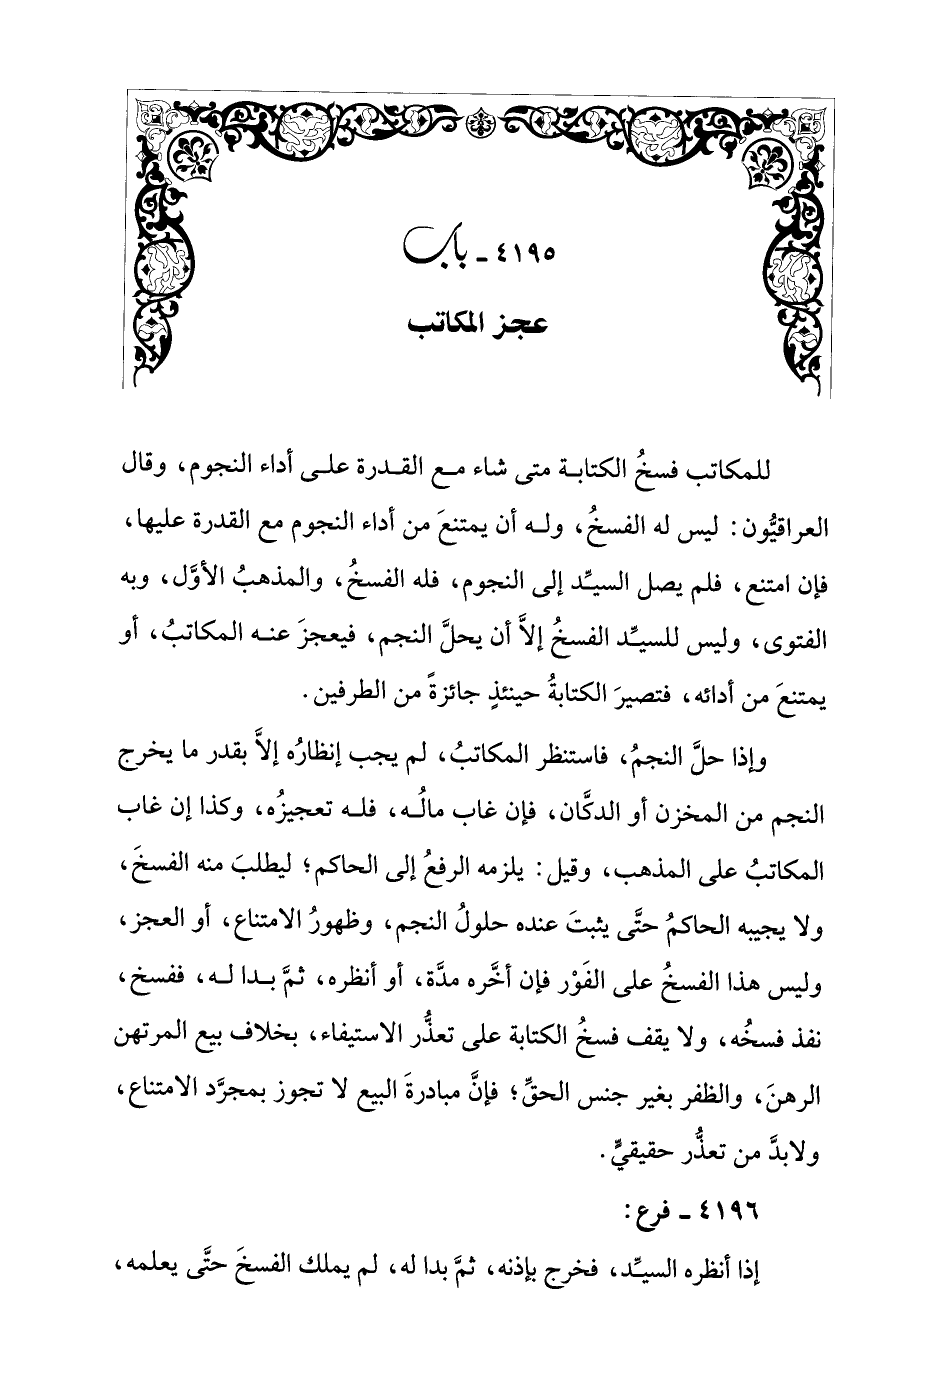 ٤١٩٥ - باب
عجز المكاتب
للمكاتب فسخُ الكتابة متى شاء مع القدرة على أداء النجوم، وقال
العراقيُّون: ليس له الفسخُ، وله أن يمتنعَ من أداء النجوم مع القدرة عليها،
فإن امتنع، فلم يصل السيِّد إلى النجوم، فله الفسخُ، والمذهبُ الأوَّل، وبه
الفتوى، وليس للسيِّد الفسخُ إلاَّ أن يحلَّ النجم، فيعجزَ عنه المكاتبُ، أو
يمتنعَ من أدائه، فتصيرَ الكتابةُ حينئذٍ جائزةً من الطرفين.
وإذا حلَّ النجمُ، فاستنظر المكاتبُ، لم يجب إنظارُه إلاَّ بقدر ما يخرج
النجم من المخزن أو الدكَّان، فإن غاب مالُه، فله تعجيزُه، وكذا إن غاب
المكاتبُ على المذهب، وقيل: يلزمه الرفعُ إلى الحاكم؛ ليطلبَ منه الفسخَ،
ولا يجيبه الحاكمُ حتَّى يثبتَ عنده حلولُ النجم، وظهورُ الامتناع، أو العجز،
وليس هذا الفسخُ على الفَوْر فإن أخَّره مدَّة، أو أنظره، ثمَّ بدا له، ففسخ،
نفذ فسخُه، ولا يقف فسخُ الكتابة على تعذُّر الاستيفاء، بخلاف بيع المرتهن
الرهنَ، والظفر بغير جنس الحقِّ؛ فإنَّ مبادرةَ البيع لا تجوز بمجرَّد الامتناع،
ولابدَّ من تعذُّر حقيقيٍّ.
٤١٩٦ - فرع:
إذا أنظره السيِّد، فخرج بإذنه، ثمَّ بدا له، لم يملك الفسخَ حتَّى يعلمه،